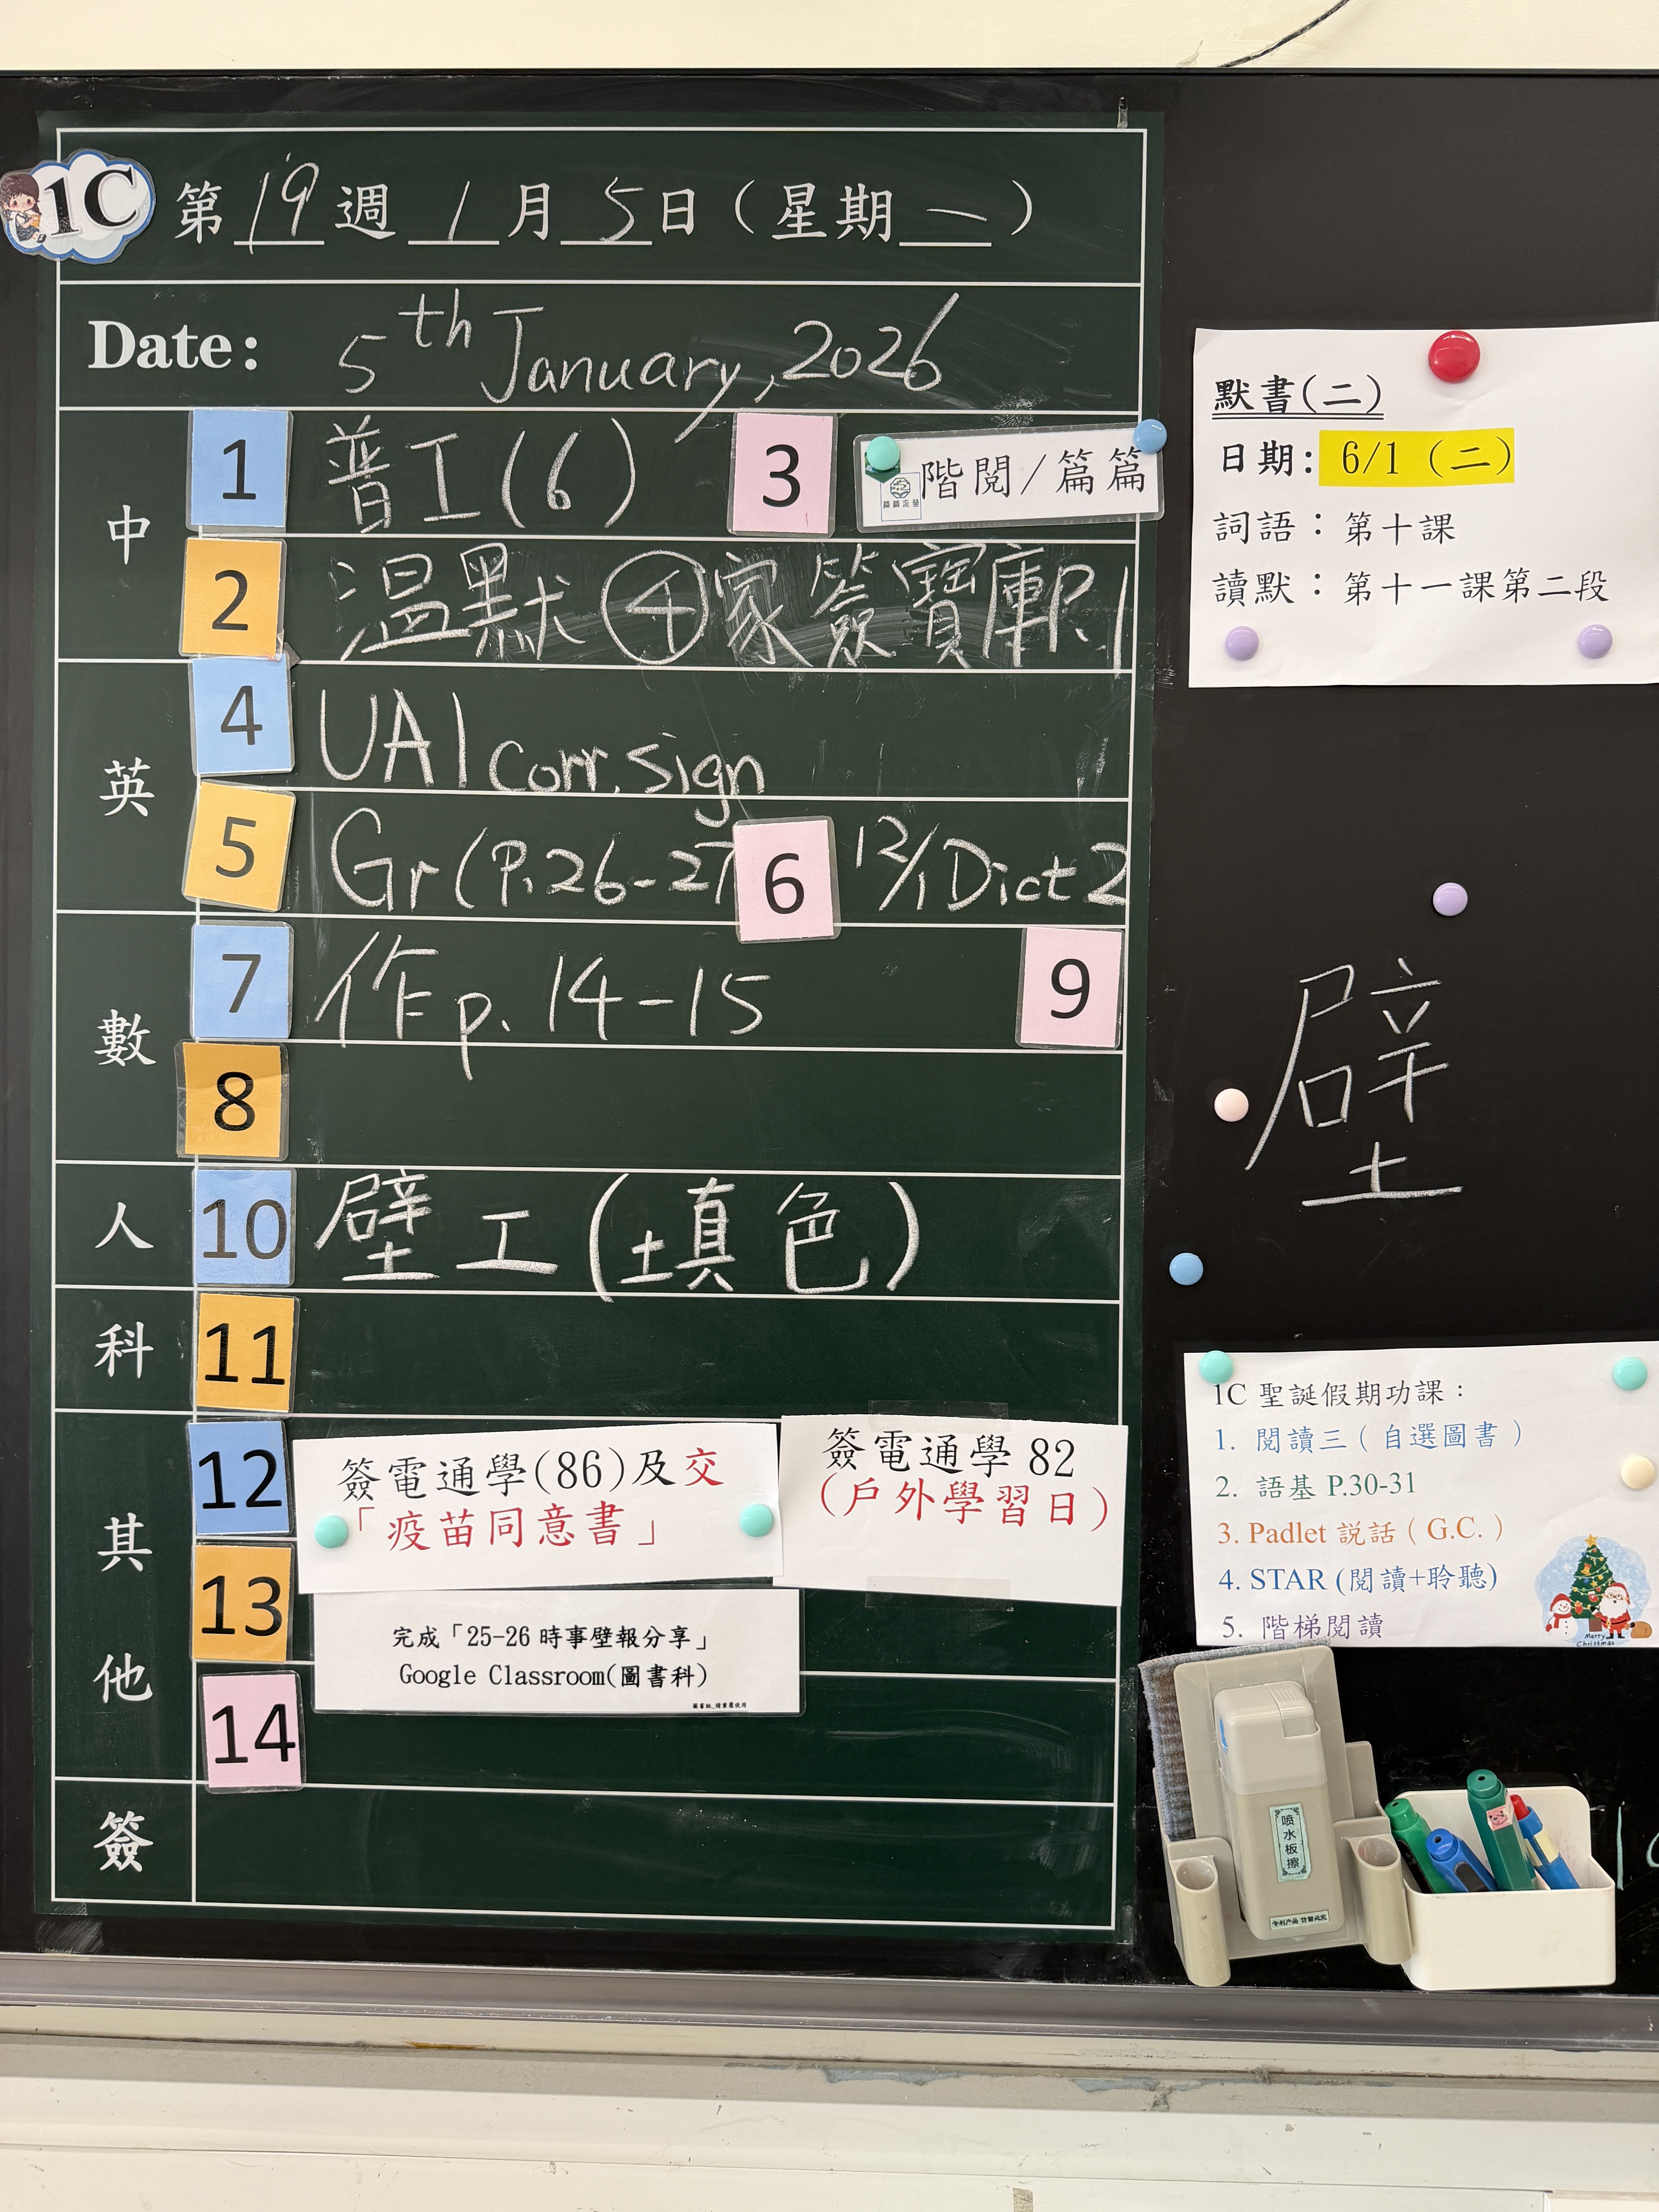 1C 第 19 週 1 月 5 日（星期 一 ）
Date: 5th January, 2026
中
1 普工(6) 3 階閱/篇篇
篇篇流螢
2 溫默 ④家簽寶庫P.1
英
4 UA1 corr. sign
5 Gr (P.26-27 6 12/1 Dict 2
數
7 作p. 14-15 9
8
人 10 壁工(填色)
科 11
其他
12 簽電通學(86)及交
「疫苗同意書」
簽電通學 82
(戶外學習日)
13 完成「25-26 時事壁報分享」
Google Classroom(圖書科)
14
簽
默書(二)
日期: 6/1 (二)
詞語：第十課
讀默：第十一課第二段
壁
1C 聖誕假期功課：
1. 閱讀三（自選圖書）
2. 語基 P.30-31
3. Padlet 説話（G.C.）
4. STAR (閱讀+聆聽)
5. 階梯閱讀
Merry
Christmas
喷水板擦